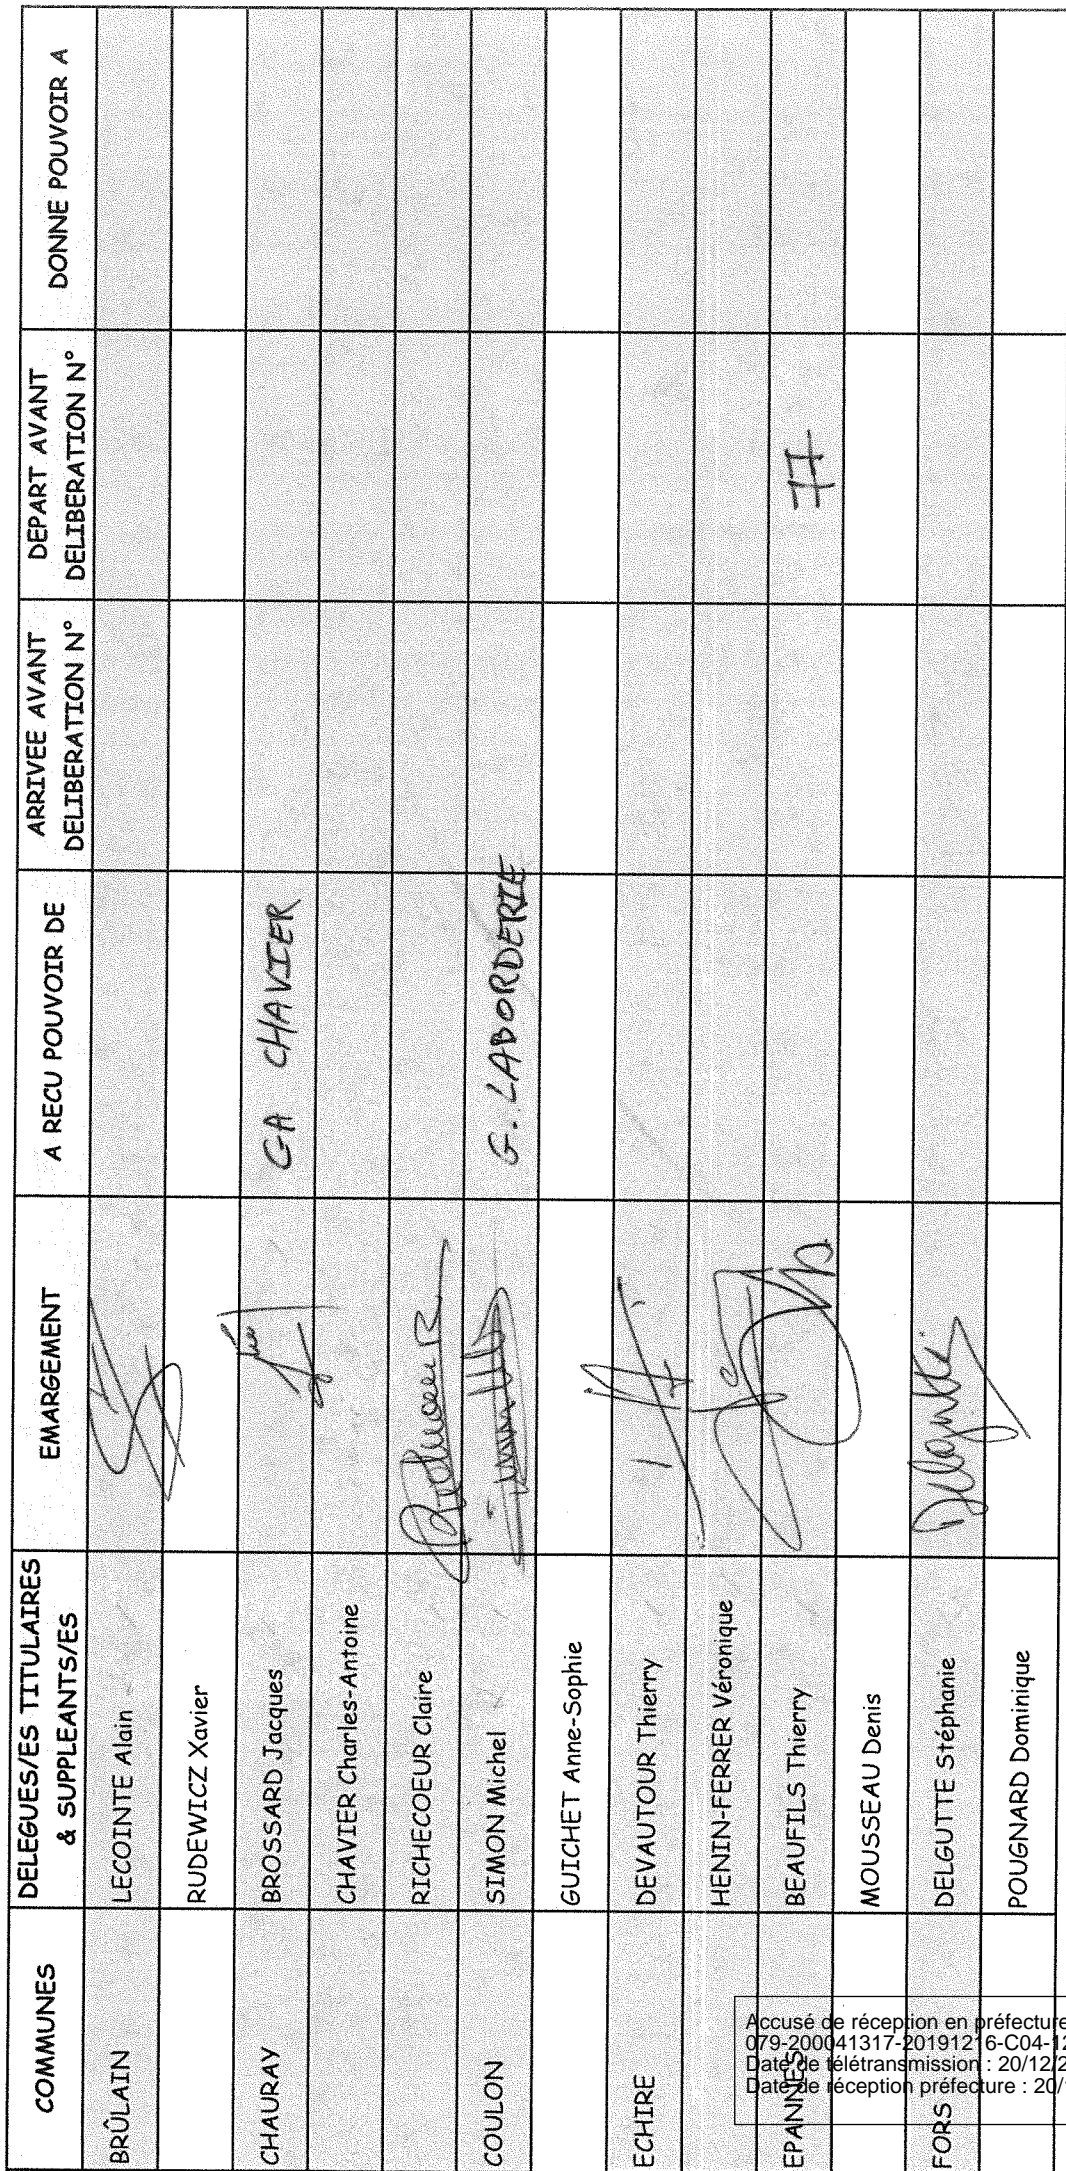 COMMUNES
DELEGUES/ES TITULAIRES
& SUPPLEANTS/ES
EMARGEMENT
A RECU POUVOIR DE
ARRIVEE AVANT
DELIBERATION N°
DEPART AVANT
DELIBERATION N°
DONNE POUVOIR A
BRÛLAIN
LECOINTE Alain
RUDEWICZ Xavier
CHAURAY
BROSSARD Jacques
CA CHAVIER
CHAVIER Charles-Antoine
RICHECOEUR Claire
COULON
SIMON Michel
G. LABORDERIE
GUICHET Anne-Sophie
ECHIRE
DEVAUTOUR Thierry
HENIN-FERRER Véronique
EPANNES
BEAUFILS Thierry
77
MOUSSEAU Denis
FORS
DELGUTTE Stéphanie
Delgutte
POUGNARD Dominique
Accusé de réception en préfecture
079-200041317-20191216-C04-12
Date de télétransmission : 20/12/2
Date de réception préfecture : 20/